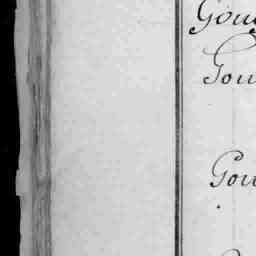 Gou
Gou
Gou